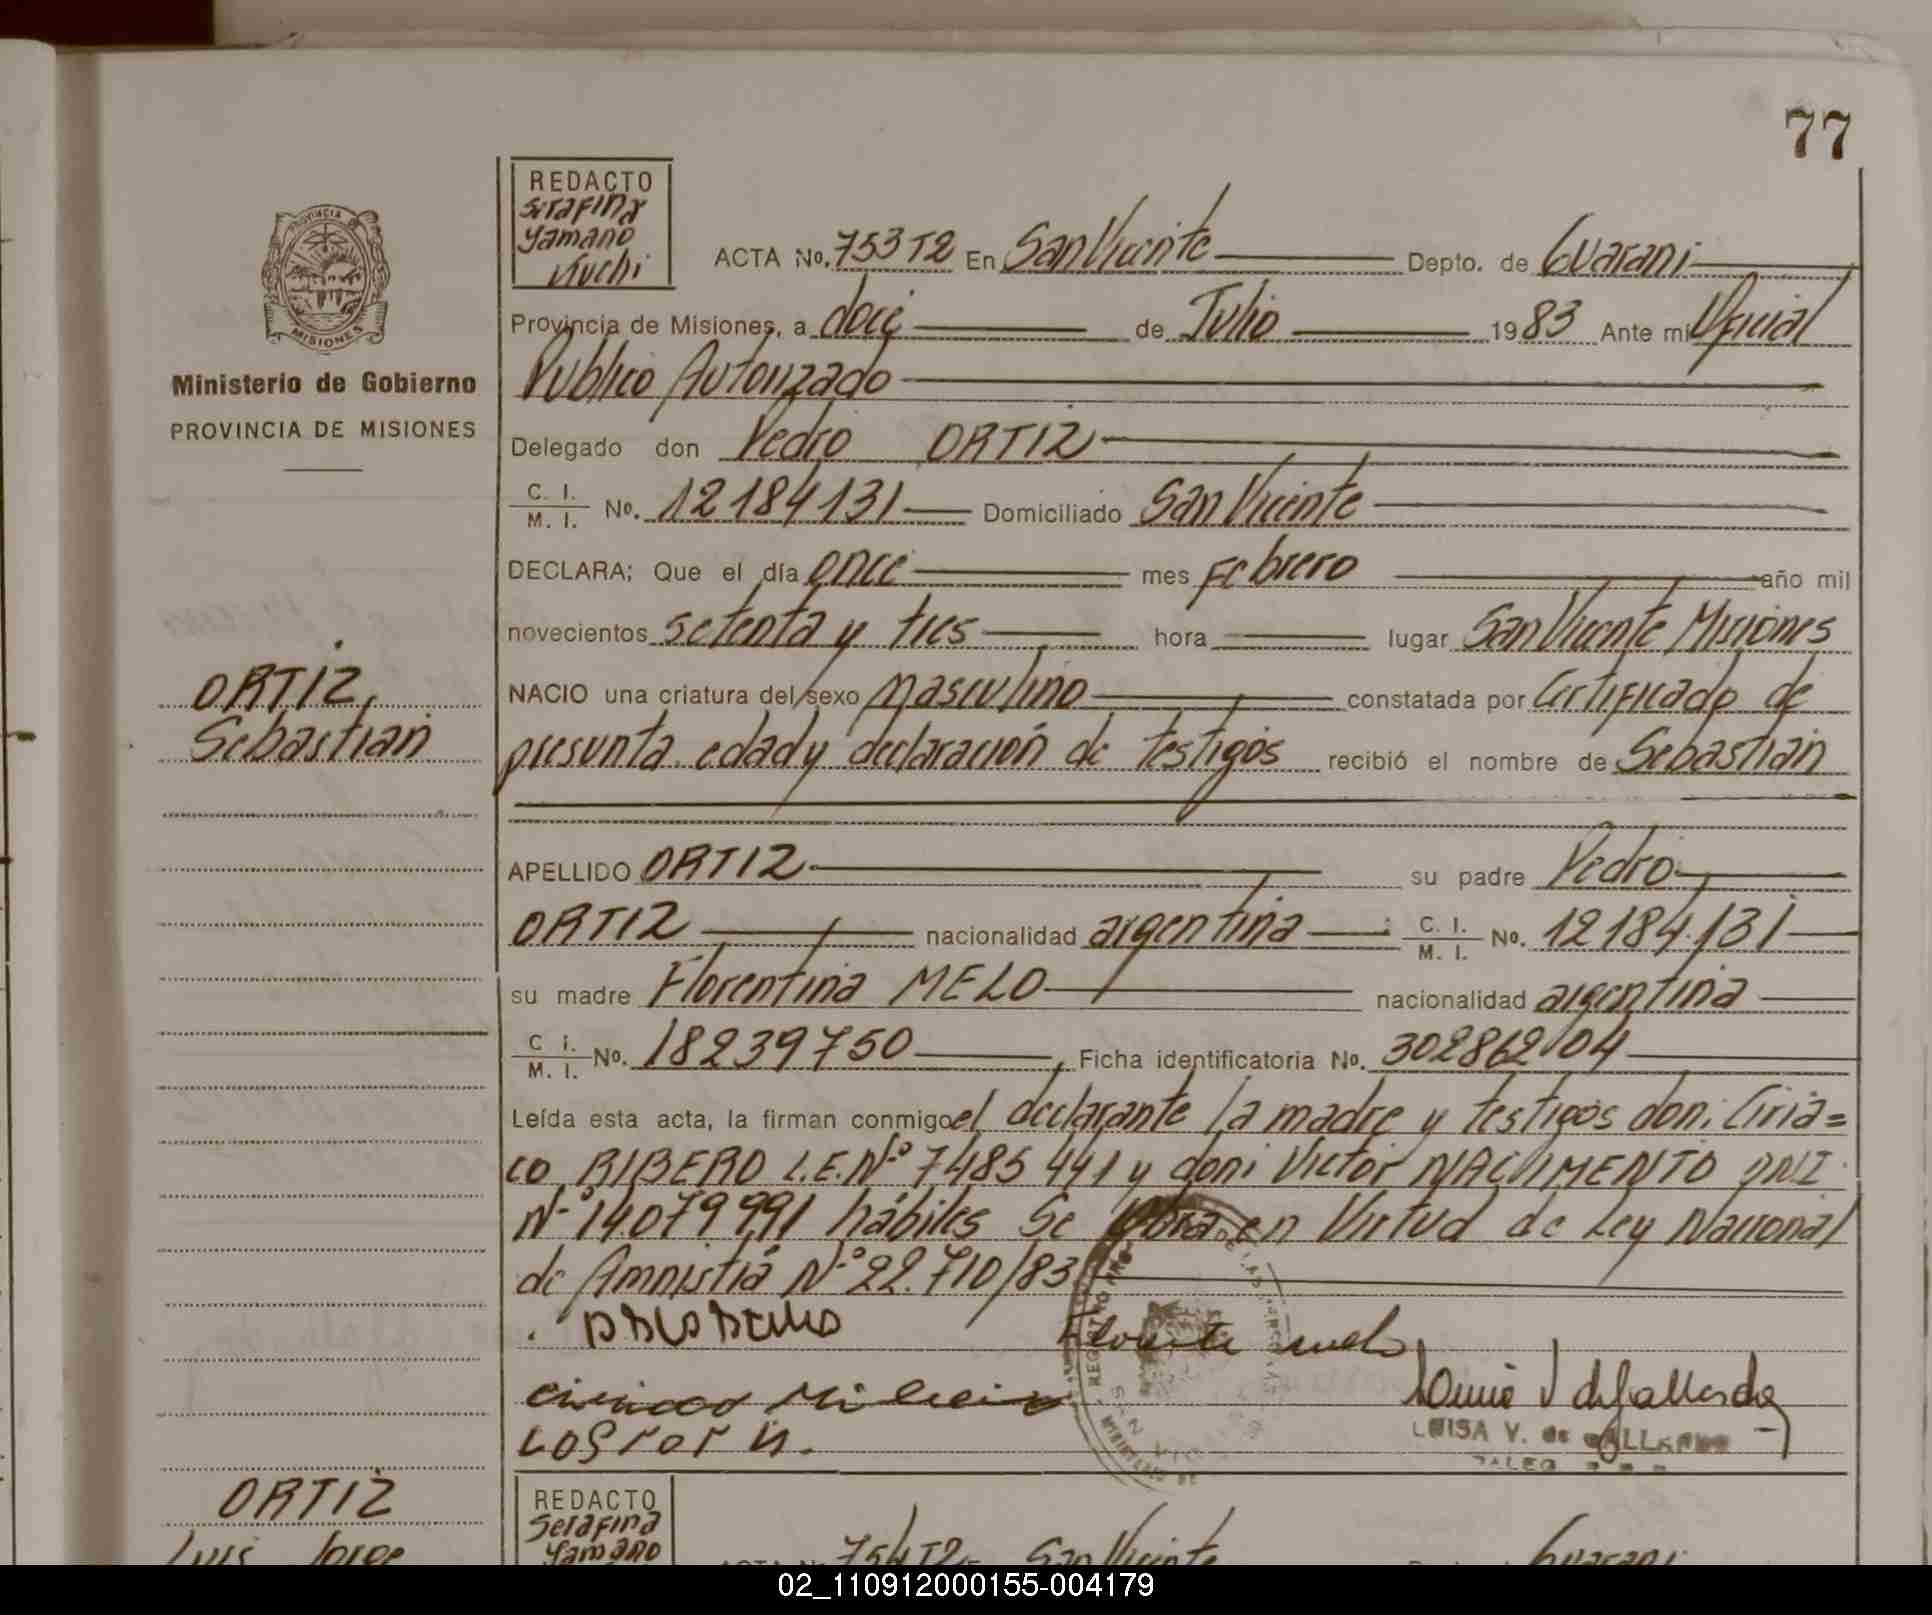 77
REDACTO
Serafina
Yamano
Kiuchi
ACTA No. 753T2 En San Vicente Depto. de Guarani
Provincia de Misiones, a doce de Julio 1983 Ante mí Oficial
Publico Autorizado
PROVINCIA
MISIONES
Ministerio de Gobierno
PROVINCIA DE MISIONES
Delegado don Pedro ORTIZ
C. I. / M. I. No. 12184131 Domiciliado San Vicente
DECLARA; Que el día once mes Febrero año mil
novecientos setenta y tres hora lugar San Vicente Misiones
ORTIZ,
Sebastian
NACIO una criatura del sexo Masculino constatada por Certificado de
presunta edad y declaración de testigos recibió el nombre de Sebastian
APELLIDO ORTIZ su padre Pedro
ORTIZ nacionalidad argentina C. I. / M. I. No. 12184.131
su madre Florentina MELO nacionalidad argentina
C. I. / M. I. No. 18239750, Ficha identificatoria No. 302862104
Leída esta acta, la firman conmigo el declarante la madre y testigos don: Ciria=
co RIBERO L.E.Nº 7485441 y don: Victor NACIMENTO DNI
Nº 14079991 hábiles Se labra en Virtud de Ley Nacional
de Amnistia Nº 22.710/83
LUISA V. de GALLARDO
ORTIZ
Luis Jorge
REDACTO
Serafina
Yamano
ACTA No. 754T2 En San Vicente Guarani
02_110912000155-004179